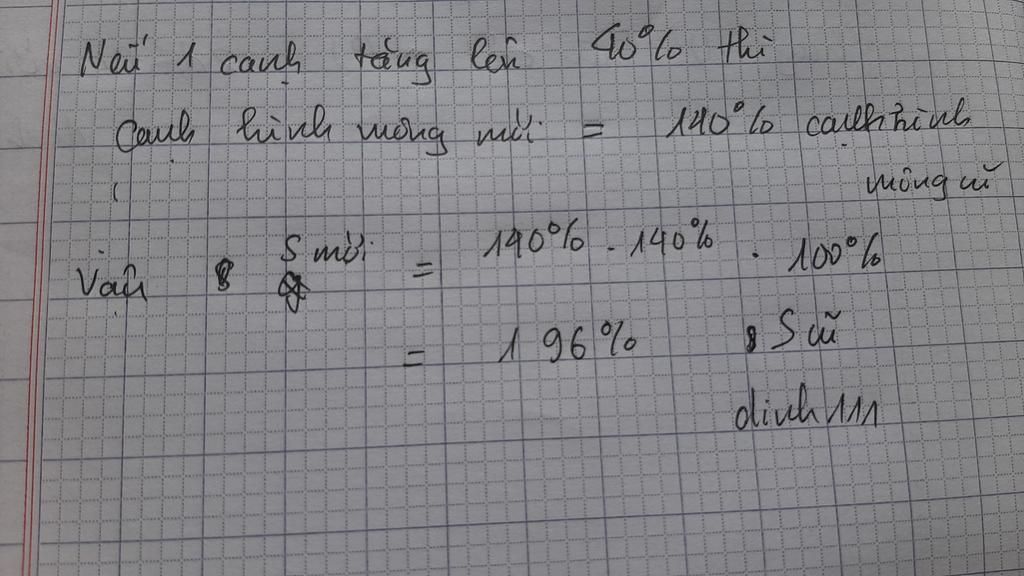 Nếu 1 cạnh tăng lên 40% thì
Cạnh hình vuông mới = 140% cạnh hình
vuông cũ
Vậy S mới = 140% . 140% . 100%
= 196% S cũ
dinh111